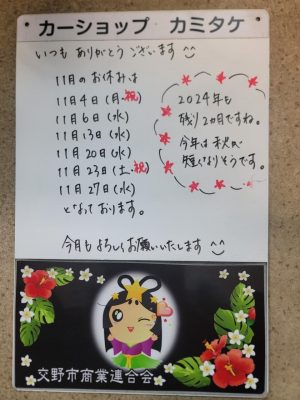 カーショップ カミタケ
いつも ありがとうございます ^^
11月のお休みは
11月4日(月・祝)
11月6日(水)
11月13日(水)
11月20日(水)
11月23日(土・祝)
11月27日(水)
となっております。
2024年も
残り2カ月ですね。
今年は秋が
短くなりそうです。
今月もよろしくお願いいたします ^^
交野市商業連合会